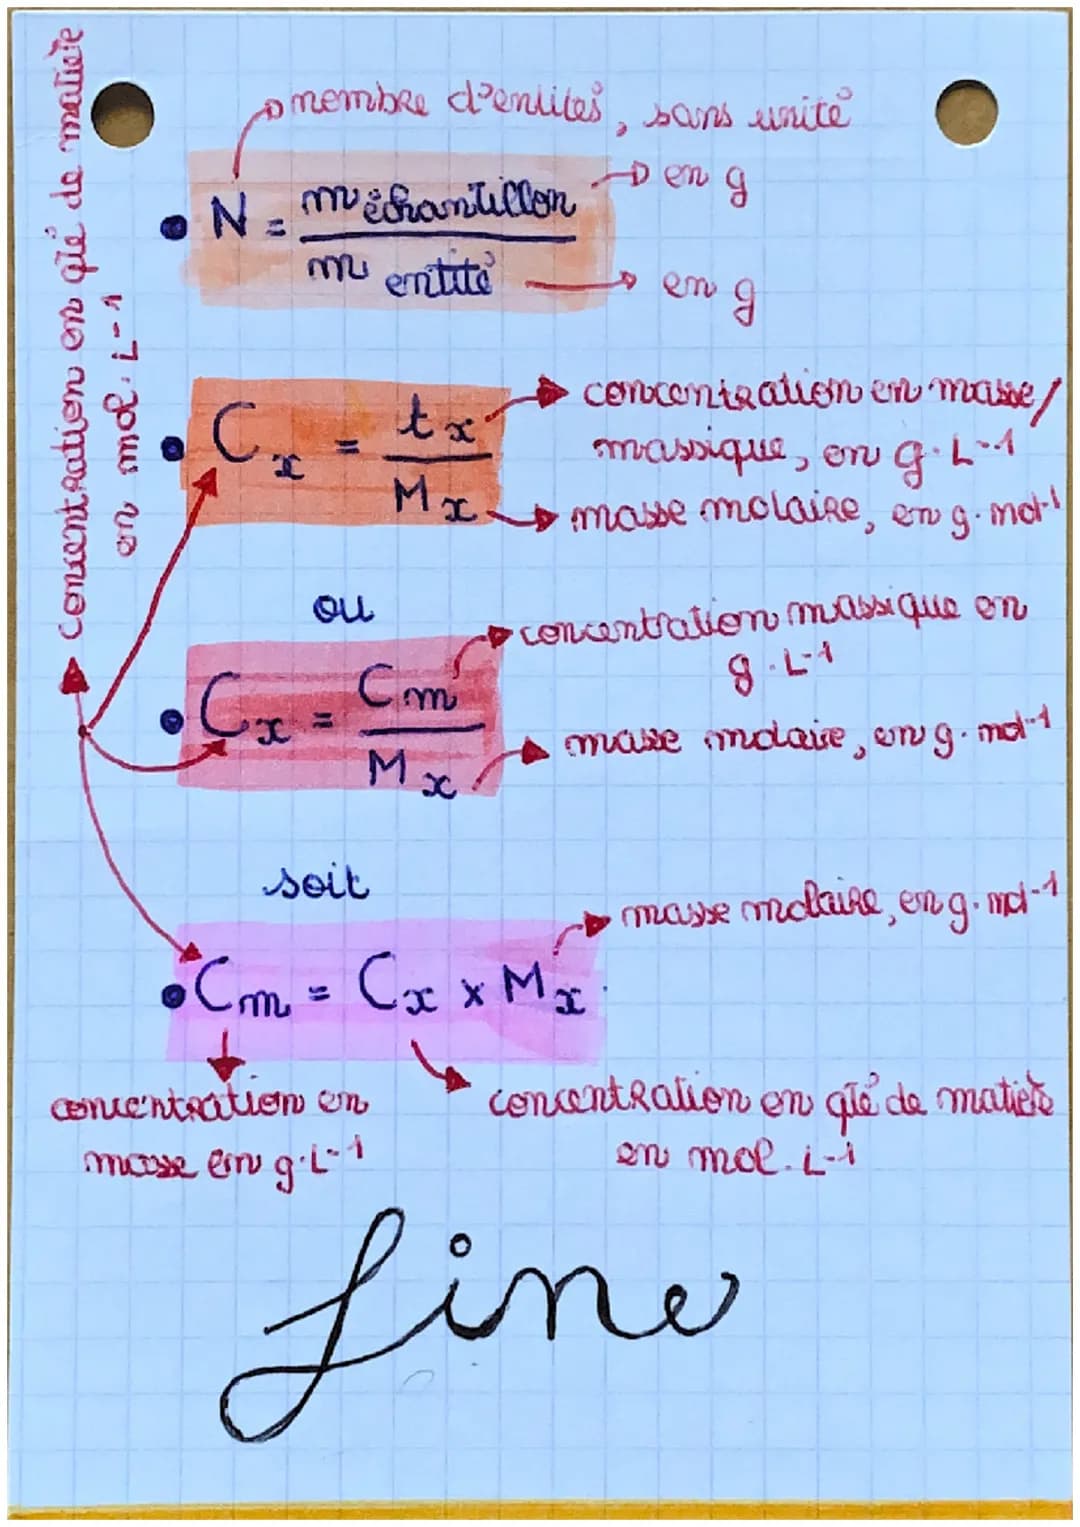 concentration en qté de matière
en mol.L-1
nombre d'entités, sans unité
• N = m échantillon / m entité
en g
en g
• Cx = tx / Mx
concentration en masse/
massique, en g.L-1
masse molaire, en g.mol-1
ou
• Cx = Cm / Mx
concentration massique en
g.L-1
masse molaire, en g.mol-1
soit
masse molaire, en g.mol-1
• Cm = Cx x Mx
concentration en
masse en g.L-1
concentration en qté de matière
en mol.L-1
fine